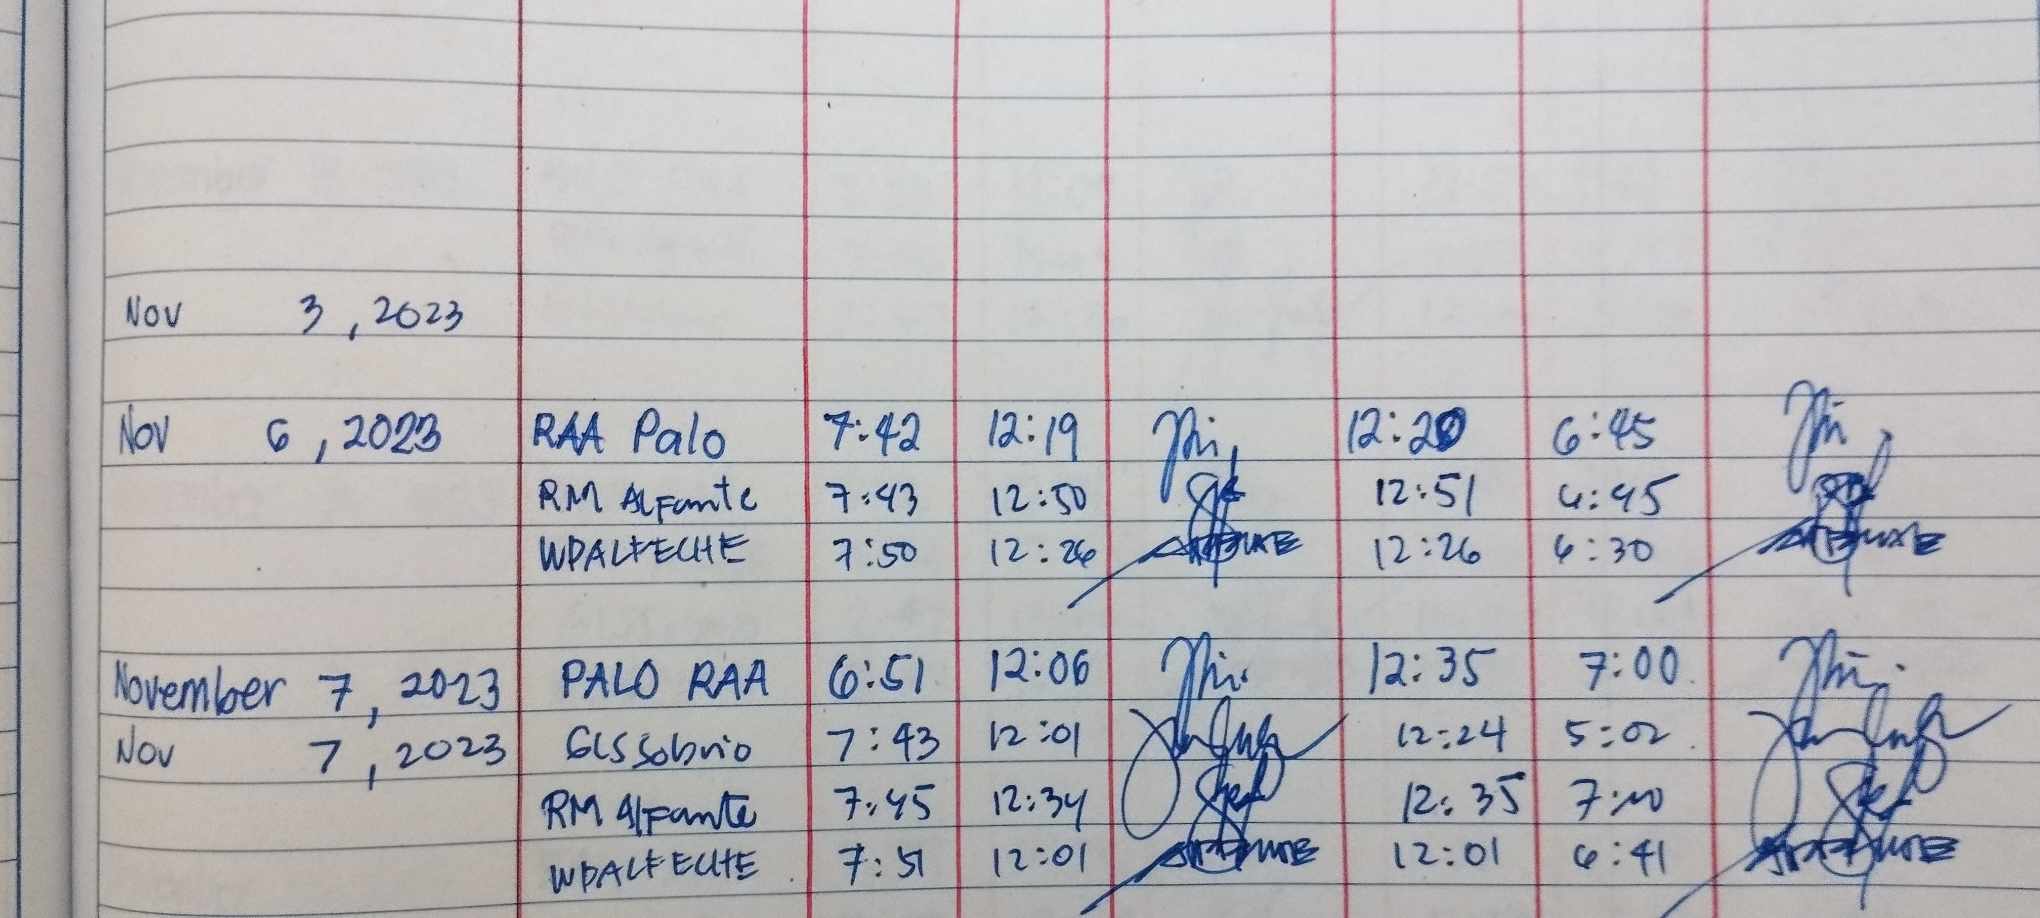 Nov 3, 2023
Nov 6, 2023 RAA Palo 7:42 12:19 12:20 6:45
RM Alfante 7:43 12:50 12:51 6:45
WPALFECHE 7:50 12:26 12:26 6:30
November 7, 2023 PALO RAA 6:51 12:06 12:35 7:00
Nov 7, 2023 GLSSobrio 7:43 12:01 12:24 5:02
RM Alfante 7:45 12:34 12:35 7:00
WPALFECHE 7:51 12:01 12:01 6:41